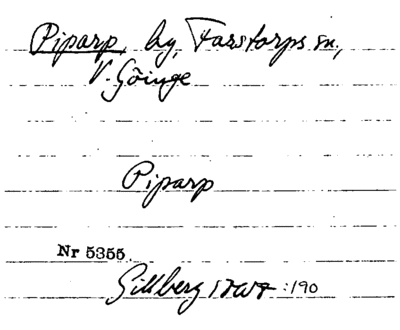 Piparp, by, Farstorps sn.,
V. Göinge
Piparp
Nr 5355.
Gillberg :190